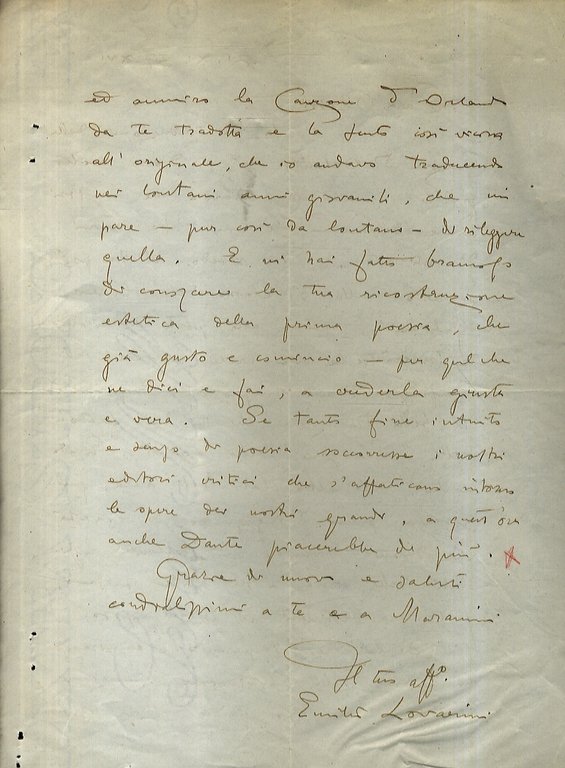 ed ammiro la Canzone d'Orlando
da te tradotta e la sento così vicina
all'originale, che io andavo traducendo
nei lontani anni giovanili, che mi
pare — pur così da lontano — di rileggere
quella. E mi hai fatto bramoso
di conoscere la tua ricostruzione
estetica della prima poesia, che
già gusto e comincio — per quel che
ne dici e fai, a crederla giusta
e vera. Se tanto fine intuito
e senso di poesia soccorresse i nostri
editori critici che s'affaticano intorno
le opere dei nostri grandi, a quest'ora
anche Dante piacerebbe di più.
Grazie di nuovo e saluti
cordialissimi a te e a
Il tuo affo.
Emilio Lovarini